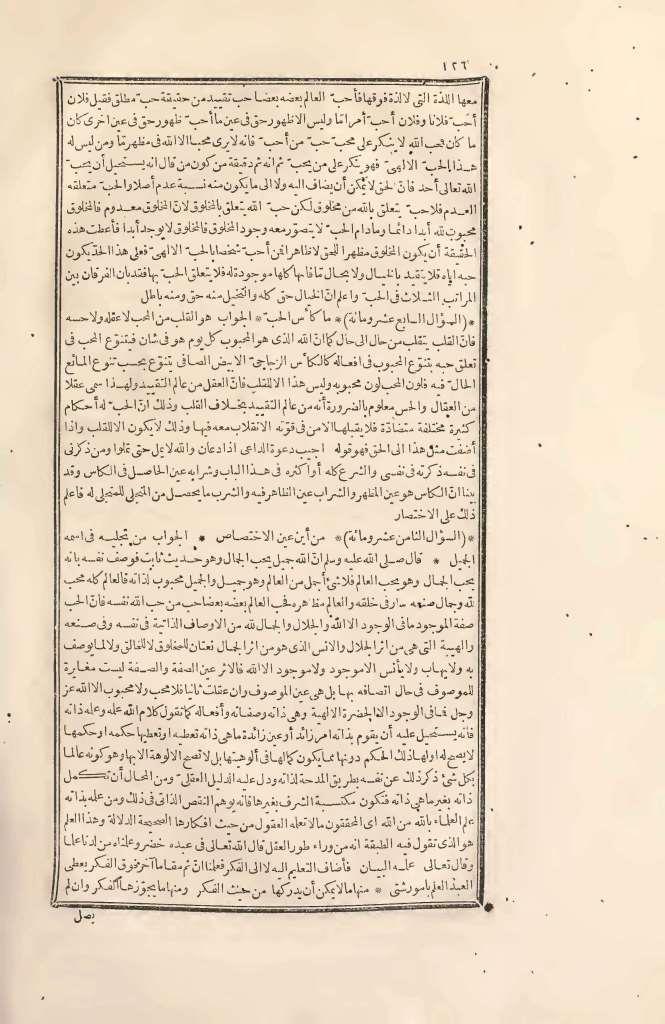 ١٢٦
معها اللذة التى لا لذة فوقها فأحب العالم بعضه بعضا حب تقييد من حقيقة حب مطلق فقيل فلان
أحب فلانا وفلان أحب أمرا ما وليس الا ظهور حق فى عين ما أحب ظهور حق فى عين اخرى كان
ما كان فمحب الله لا ينكر على محب حب من أحب فانه لا يرى محبا الا الله فى مظهر ما ومن ليس له
هذا الحب الالهى فهو ينكر على من يحب ثم انه ثم دقيقة من كون من قال انه يستحيل أن يحب
الله تعالى أحد فان الحق لا يمكن أن يضاف اليه ولا الى ما يكون منه نسبة عدم أصلا والحب متعلقه
العدم فلا حب يتعلق بالله من مخلوق لكن حب الله يتعلق بالمخلوق لان المخلوق معدوم فالمخلوق
محبوب لله أبدا دائما ومادام الحب لا يتصور معه وجود المخلوق فالمخلوق لا يوجد أبدا فأعطت هذه
الحقيقة أن يكون المخلوق مظهرا للحق لا ظاهرا فمن أحب شخصا بالحب الالهى فعلى هذا الحد يكون
حبه اياه فلا يتقيد بالخيال ولا بجمال ما فانها كلها موجودة له فلا يتعلق الحب بها فقد بان الفرقان بين
المراتب الثلاث فى الحب واعلم ان الخيال حق كله والتخيل منه حق ومنه باطل
* (السؤال السابع عشر ومائة) * ما كأس الحب * الجواب هو القلب من المحب لا عقله ولا حسه
فان القلب يتقلب من حال الى حال كما ان الله الذى هو المحبوب كل يوم هو فى شان فيتنوع المحب فى
تعلق حبه بتنوع المحبوب فى افعاله كالكأس الزجاجى الابيض الصافى يتنوع بحسب تنوع المائع
الحال فيه فلون المحب لون محبوبه وليس هذا الا للقلب فان العقل من عالم التقييد ولهذا سمى عقلا
من العقال والحس معلوم بالضرورة أنه من عالم التقييد بخلاف القلب وذلك ان الحب له أحكام
كثيرة مختلفة متضادة فلا يقبلها الا من فى قوته الانقلاب معه فيها وذلك لا يكون الا للقلب واذا
أضفت مثل هذا الى الحق فهو قوله اجيب دعوة الداعى اذا دعان والله لا يمل حتى تملوا ومن ذكرنى
فى نفسه ذكرته فى نفسى والشرع كله أو اكثره فى هذا الباب وشرابه عين الحاصل فى الكاس وقد
بينا ان الكاس هو عين المظهر والشراب عين الظاهر فيه والشرب ما يحصل من المتجلى للمتجلى له فاعلم
ذلك على الاختصار
* (السؤال الثامن عشر ومائة) * من أين عين الاختصاص * الجواب من تجليه فى اسمه
الجميل * قال صلى الله عليه وسلم ان الله جميل يحب الجمال وهو حديث ثابت فوصف نفسه بانه
يحب الجمال وهو يحب العالم فلا شئ أجمل من العالم وهو جميل والجميل محبوب لذاته فالعالم كله محب
لله وجمال صنعه سار فى خلقه والعالم مظاهره فحب العالم بعضه بعضا حب من حب الله نفسه فان الحب
صفة الموجود ما فى الوجود الا الله والجلال والجمال لله من الاوصاف الذاتية فى نفسه وفى صنعه
والهيبة التى هى من اثر الجلال والانس الذى هو من اثر الجمال نعتان للمخلوق لا للخالق ولا لما يوصف
به ولا يهاب ولا يأنس الا موجود ولا موجود الا الله فالاثر عين الصفة والصفة ليست مغايرة
للموصوف فى حال اتصافه بها بل هى عين الموصوف وان عقلت ثانيا فلا محب ولا محبوب الا الله عز
وجل فما فى الوجود الا الحضرة الالهية وهى ذاته وصفاته وأفعاله كما تقول كلام الله علمه وعلمه ذاته
فانه يستحيل عليه أن يقوم بذاته امر زائد أو عين زائدة ما هى ذاته تعطيه أو تعطيها حكمه او حكمها
لا يصح له او لها ذلك الحكم دونها مما يكون كمالها فى ألوهتها بل لا تصح الالوهة الا بها وهو كونه عالما
بكل شئ ذكر ذلك عن نفسه بطريق المدحة لذاته ودل عليه الدليل العقلى ومن المحال أن تكمل
ذاته بغير ما هى ذاته فتكون مكتسبة الشرف بغيرها فانه يوهم النقص الذاتى فى ذلك ومن علمه بذاته
علم العلماء بالله من الله اى المحققون ما لا تعلمه العقول من حيث افكارها الصحيحة الدلالة وهذا العلم
هو الذى تقول فيه الطبقة انه من وراء طور العقل قال الله تعالى فى عبده خضر وعلمناه من لدنا علما
وقال تعالى علمه البيان فأضاف التعليم اليه لا الى الفكر فعلمنا ان ثم مقاما آخر فوق الفكر يعطى
العبد العلم بامور شتى * منها ما لا يمكن أن يدركها من حيث الفكر ومنها ما يجوزها الفكر وان لم
يصل